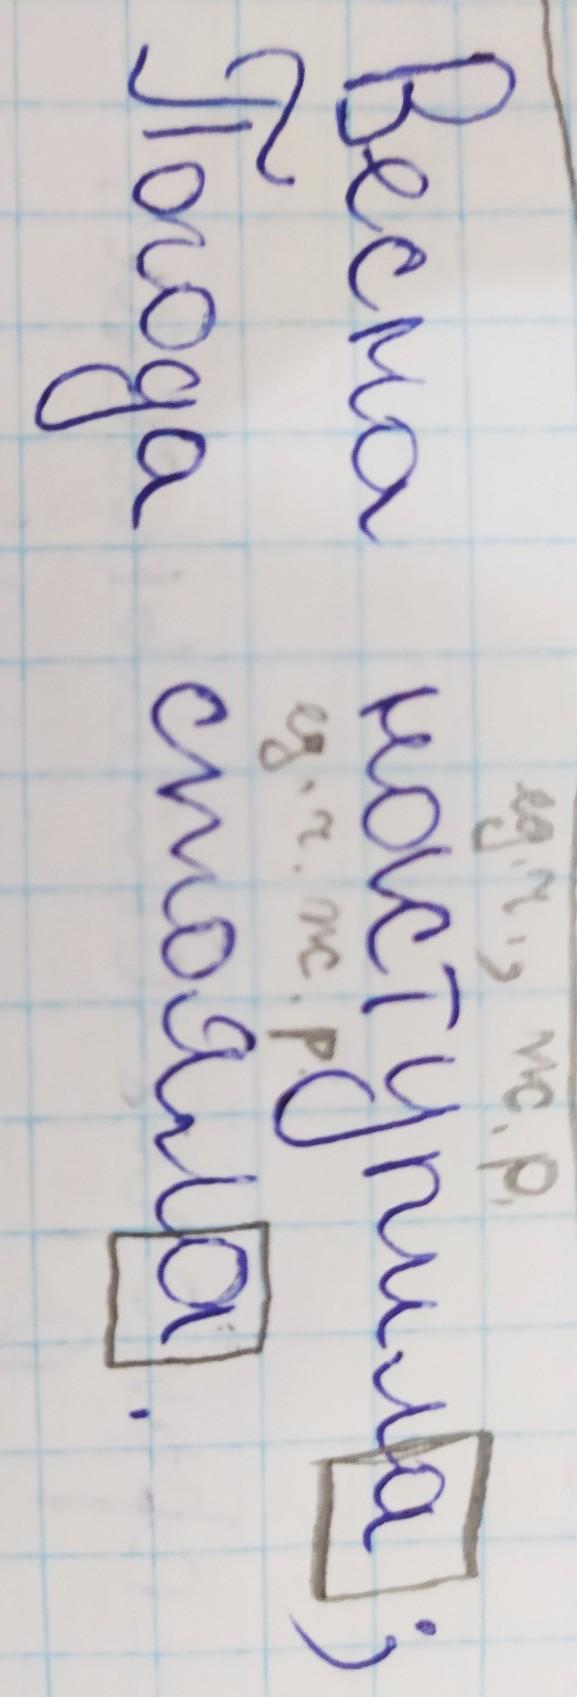 ед.ч., ж.р.
Весна наступила;
ед.ч. ж.р.
Погода стояла.